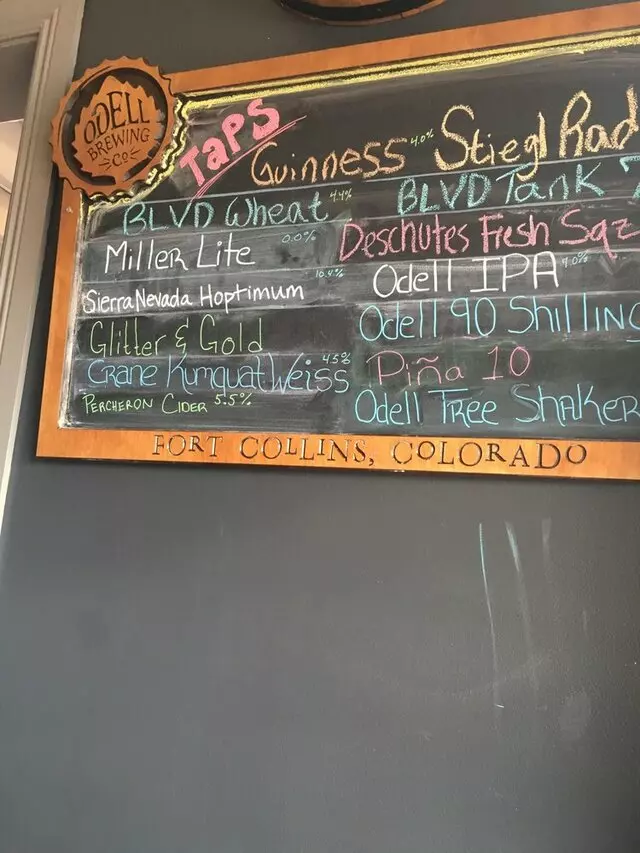 ODELL
BREWING
CO
TAPS
GUINNESS 4.0% Stiegl Rad
BLVD Wheat 4.4%
Miller Lite 0.0%
Sierra Nevada Hoptimum 10.4%
Glitter & Gold
Crane Kumquat Weiss 4.5%
PERCHERON CIDER 5.5%
BLVD Tank 7
Deschutes Fresh Sqz
Odell IPA
Odell 90 Shilling
Piña 10
Odell Tree Shaker
FORT COLLINS, COLORADO